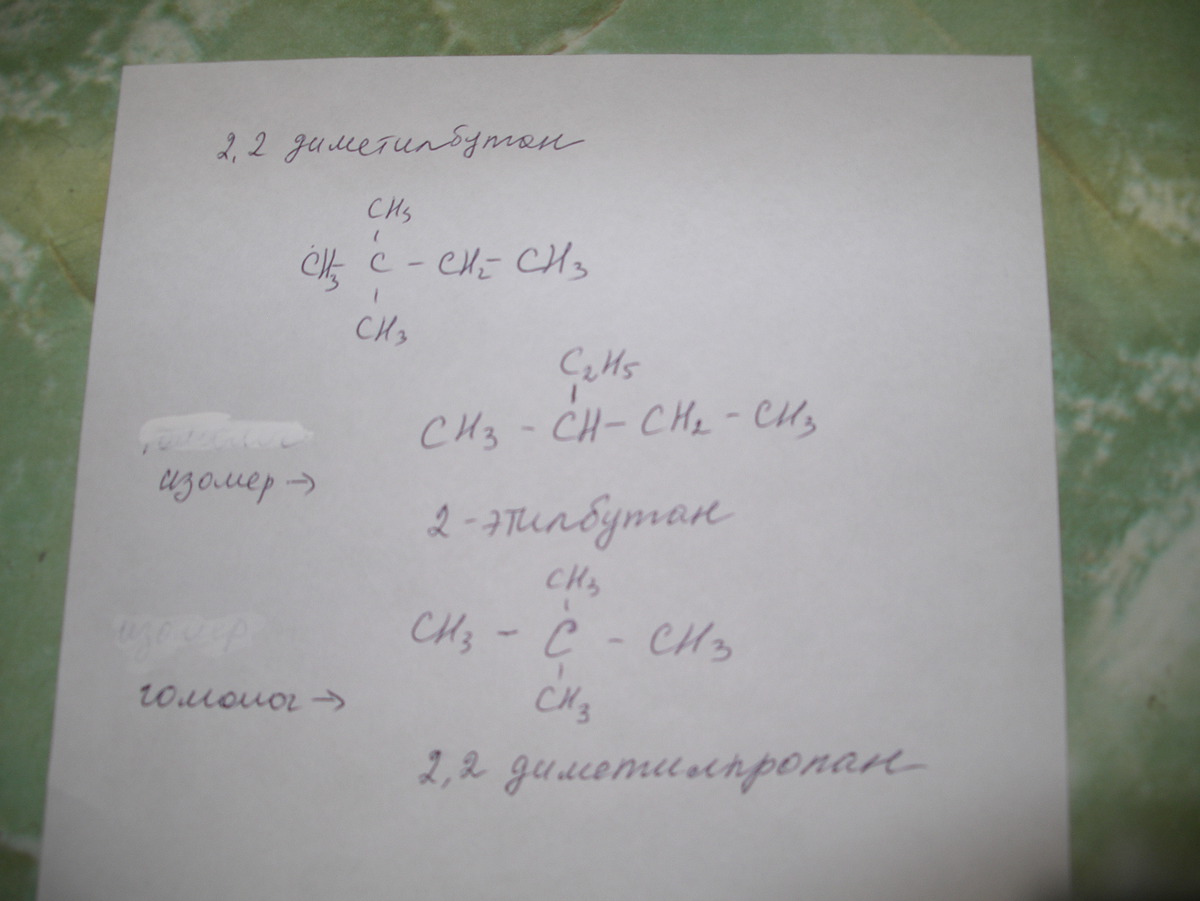 2,2 диметилбутан
CH3
CH3 - C - CH2 - CH3
CH3
C2H5
CH3 - CH - CH2 - CH3
изомер →
2-этилбутан
CH3
изомер
CH3 - C - CH3
гомолог →
CH3
2,2 диметилпропан